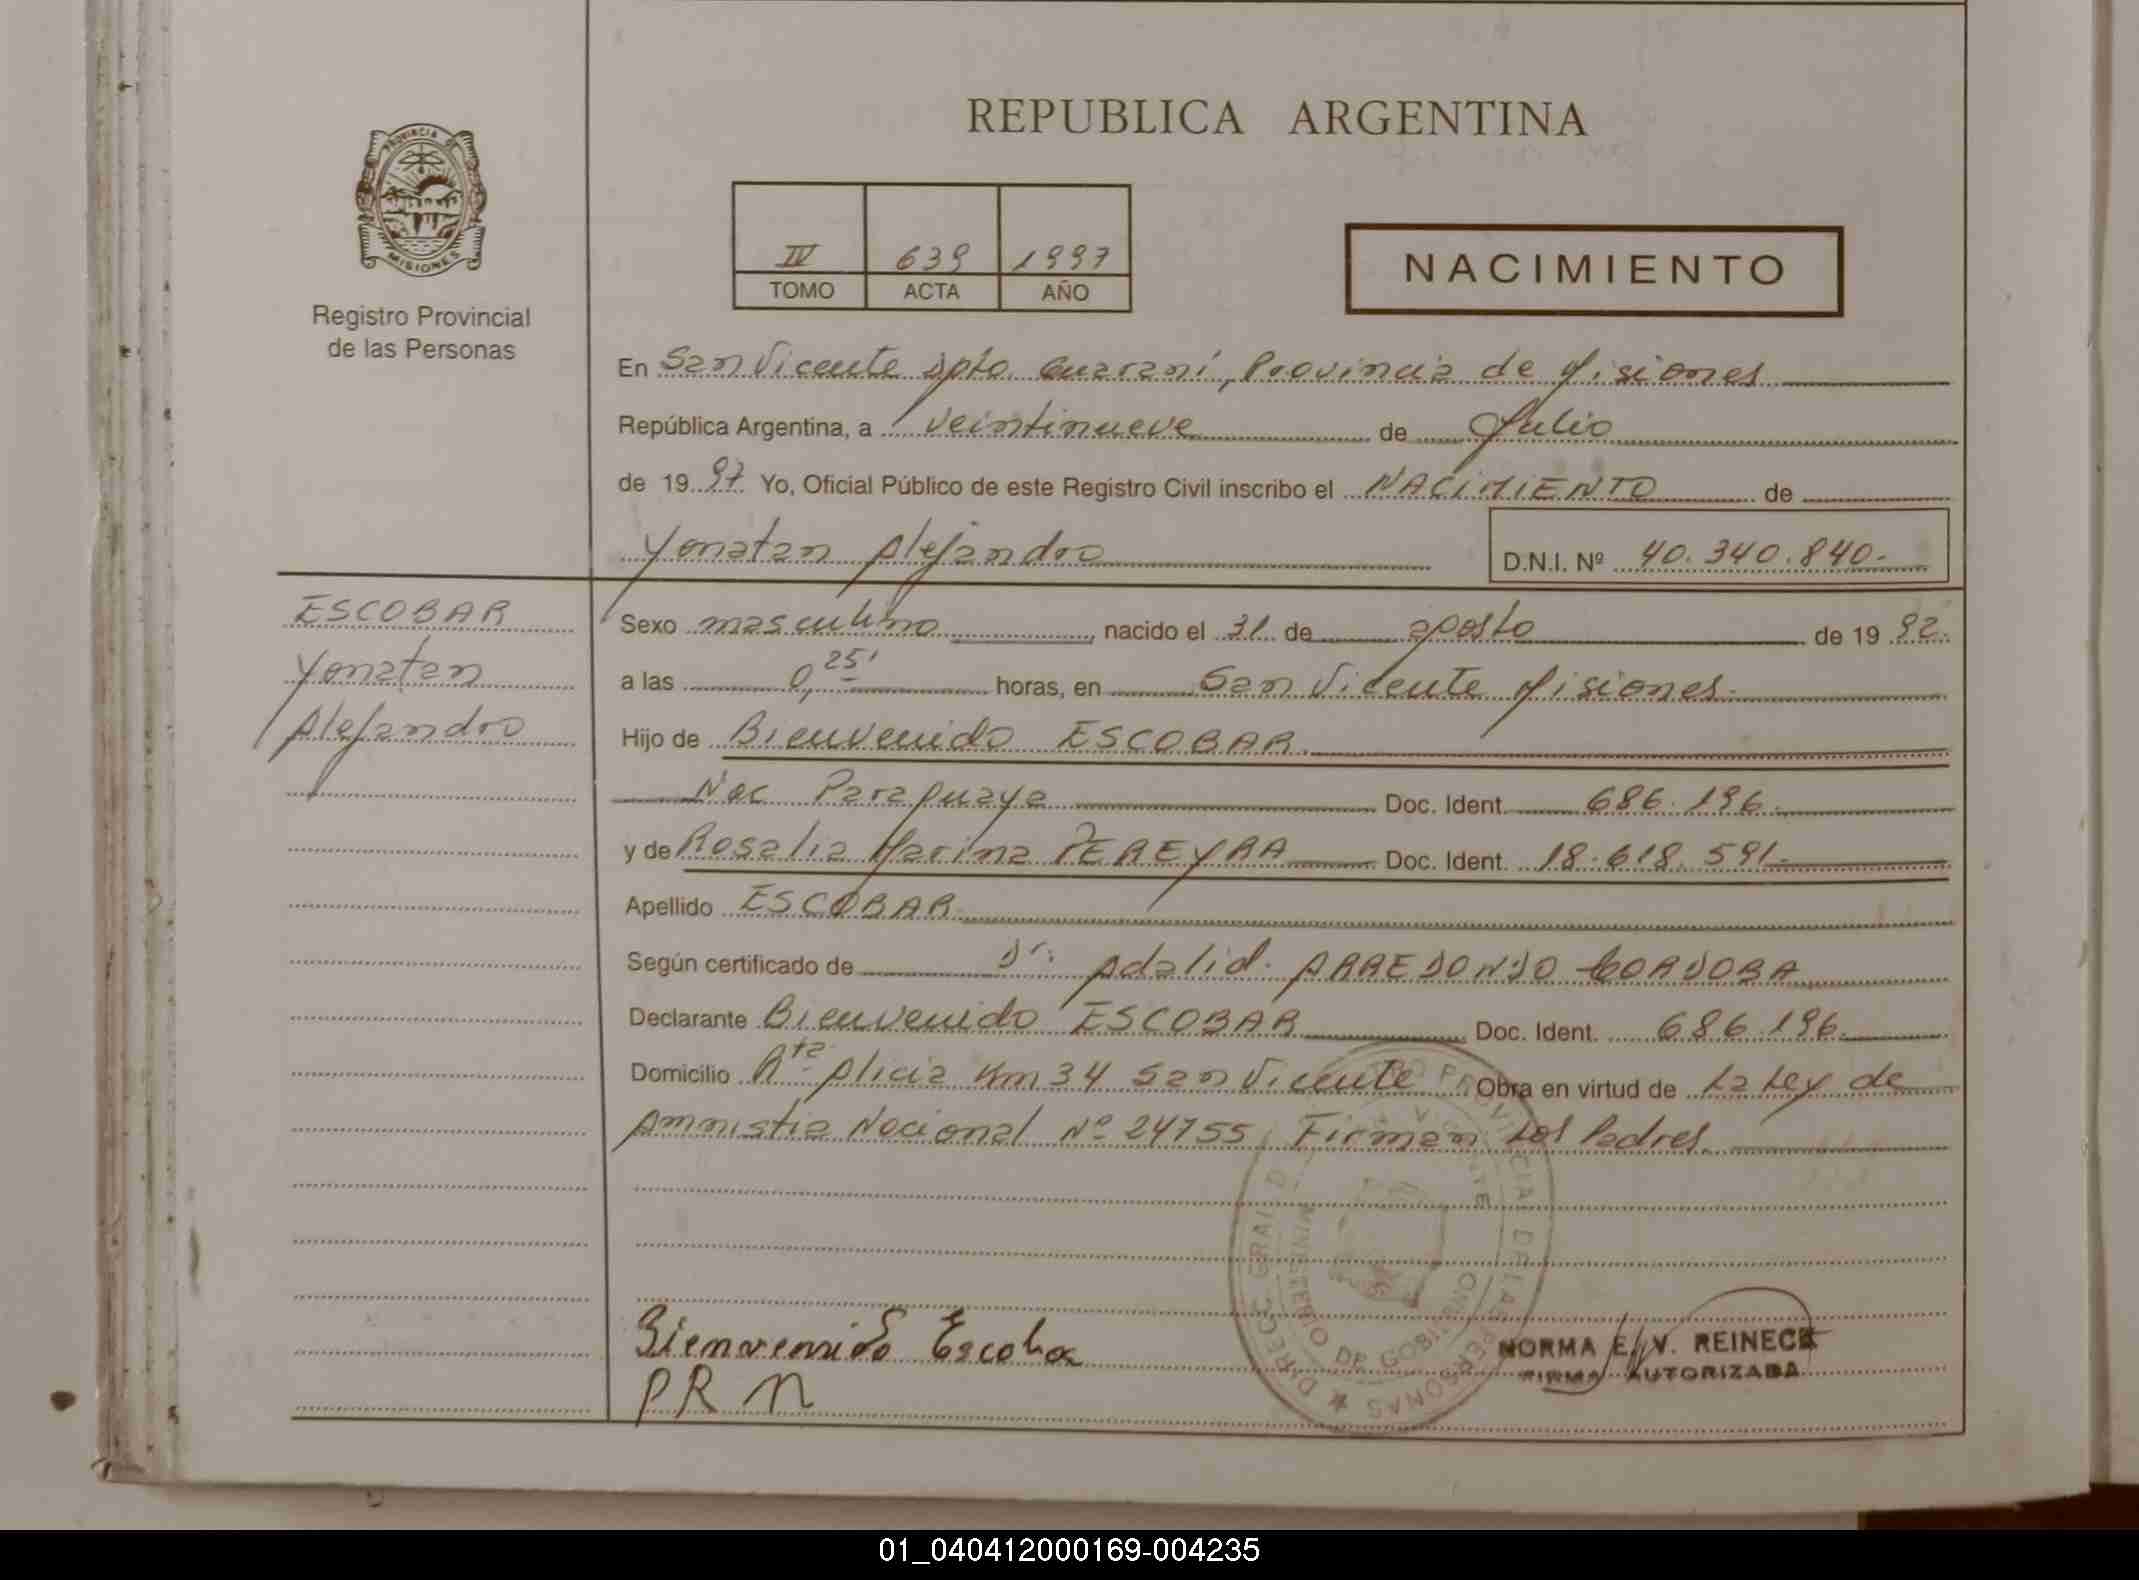 REPUBLICA ARGENTINA
PROVINCIA DE
MISIONES
Registro Provincial
de las Personas
IV 639 1997
TOMO ACTA AÑO
NACIMIENTO
En San Vicente Dpto. Guaraní, Provincia de Misiones
República Argentina, a veintinueve de Julio
de 1997 Yo, Oficial Público de este Registro Civil inscribo el NACIMIENTO de
Yonatan Alejandro D.N.I. Nº 40.340.840.-
ESCOBAR
Yonatan
Alejandro
Sexo masculino, nacido el 31 de agosto de 1992.
a las 0,25' horas, en San Vicente Misiones.
Hijo de Bienvenido ESCOBAR.
Nac Paraguaya Doc. Ident. 686.196.
y de Rosalia Marina PEREYRA Doc. Ident. 18.618.591.
Apellido ESCOBAR.
Según certificado de Dr. Adalid. ARREDONDO CORDOBA
Declarante Bienvenido ESCOBAR Doc. Ident. 686.196.
Domicilio Rta Alicia Km 34 San Vicente Obra en virtud de La Ley de
Amnistia Nacional Nº 24755, Firman Los Padres.
DIRECC. GRAL. D PROVINCIAL DE LAS PERSONAS
MINISTERIO DE GOBIERNO
Bienvenido Escoba
PR n
NORMA E. V. REINECK
FIRMA AUTORIZADA
01_040412000169-004235